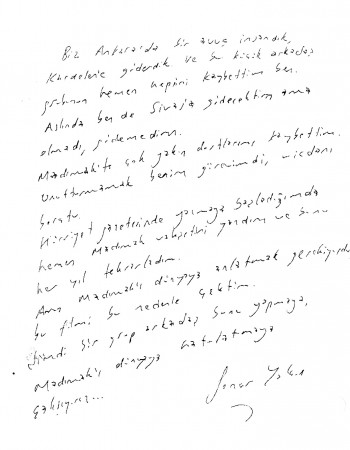 Biz Ankara'da bir avuç insandık,
Kardeş'e giderdik ve bu küçük arkadaş
grubunun hemen hepsini kaybettim ben.
Aslında ben de Sivas'a gidecektim ama
olmadı, gidemedim.
Madımak'ta çok yakın dostlarımı kaybettim.
Unutturmamak benim görevimdi, vicdani
borçtu.
Hürriyet gazetesinde yazmaya başladığımda
hemen Madımak vahşetini yazdım ve bunu
her yıl tekrarladım.
Ama Madımak'ı dünyaya anlatmak gerekiyordu
bu filmi bu nedenle çektim.
Şimdi bir grup arkadaş bunu yapmaya,
Madımak'ı dünyaya hatırlatmaya
çalışıyoruz...
Soner Yalçın